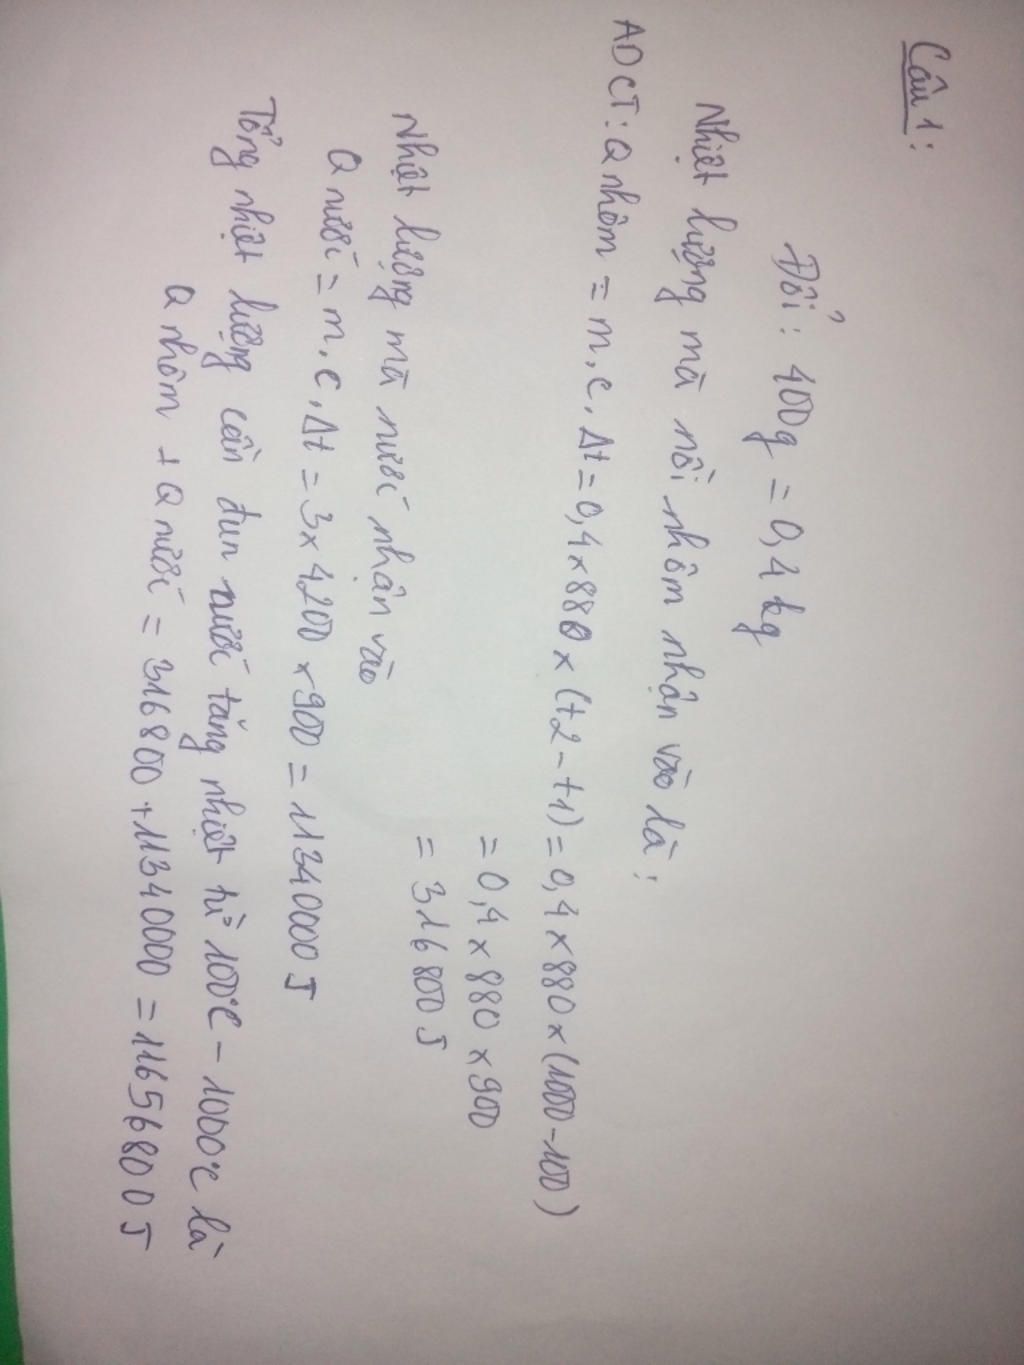 Câu 1:
Đổi: 400g = 0,4 kg
Nhiệt lượng mà nồi nhôm nhận vào là:
ADCT: Q nhôm = m.c.Δt = 0,4 x 880 x (t2 - t1) = 0,4 x 880 x (1000 - 100)
= 0,4 x 880 x 900
= 316 800 J
Nhiệt lượng mà nước nhận vào
Q nước = m.c.Δt = 3 x 4200 x 900 = 11340000 J
Tổng nhiệt lượng cần đun nước tăng nhiệt từ 100°C - 1000°C là
Q nhôm + Q nước = 316800 + 11340000 = 11656800 J